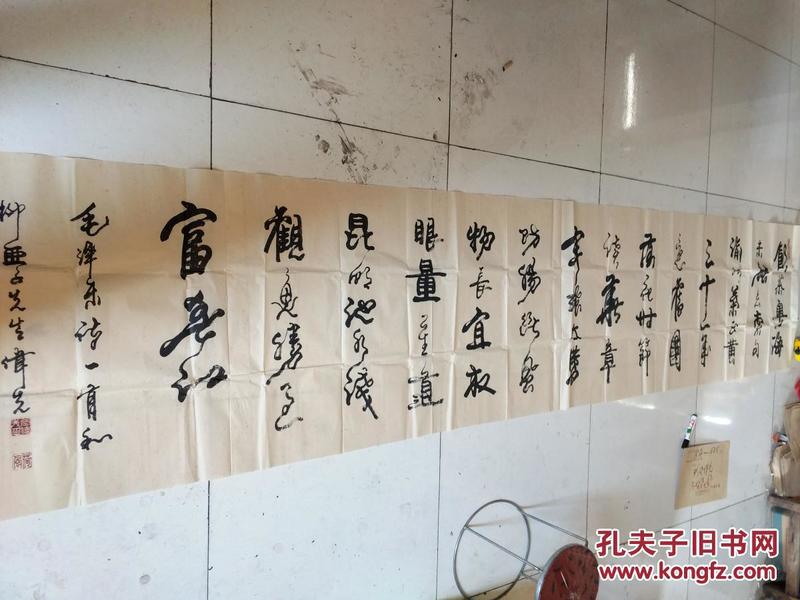 飲茶粵海
未能忘索句
渝州葉正黄
三十一年
還舊國
落花时節
讀華章
牢騷太盛
防腸斷風
物長宜放
眼量莫道
昆明池水淺
觀魚勝过
富春江
毛泽东诗一首和
柳亞子先生偉光
孔夫子旧书网
www.kongfz.com